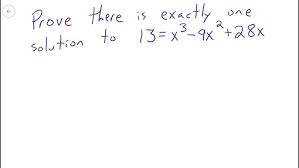 Prove there is exactly one
solution to 13 = x³ - 9x² + 28x